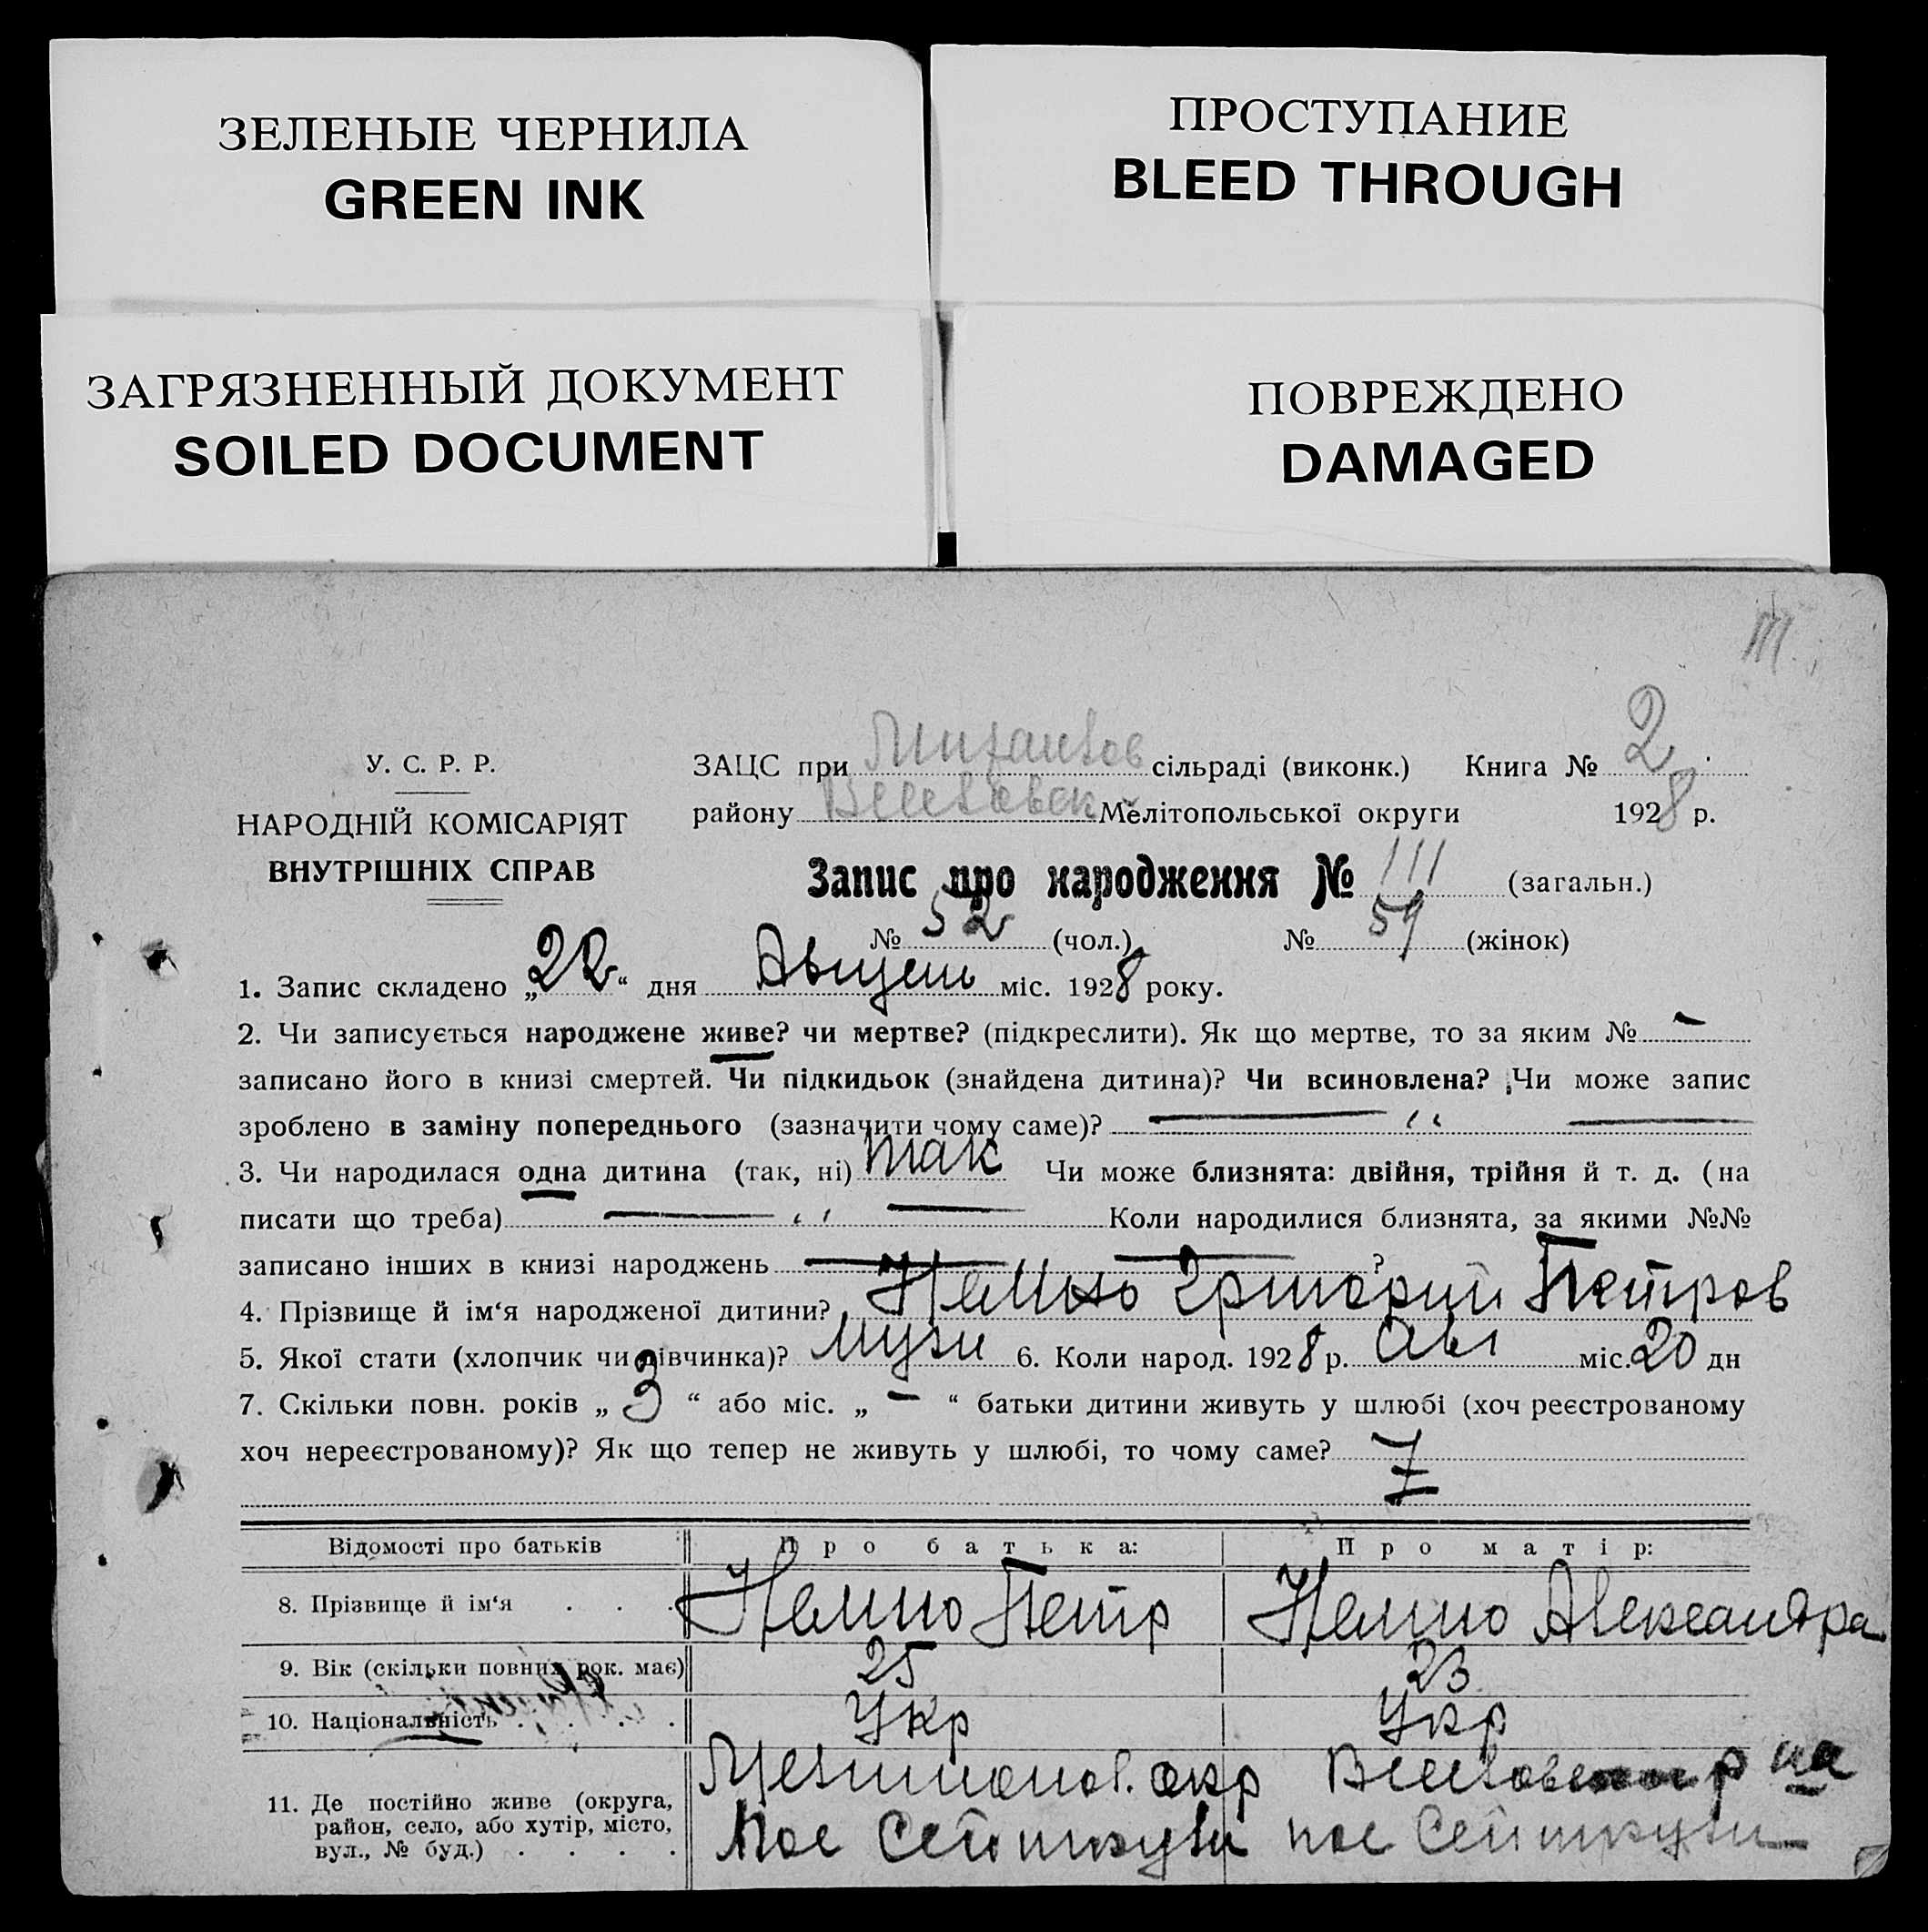 ЗЕЛЕНЫЕ ЧЕРНИЛА
GREEN INK
ПРОСТУПАНИЕ
BLEED THROUGH
ЗАГРЯЗНЕННЫЙ ДОКУМЕНТ
SOILED DOCUMENT
ПОВРЕЖДЕНО
DAMAGED
У. С. Р. Р.
НАРОДНІЙ КОМІСАРІЯТ
ВНУТРІШНІХ СПРАВ
ЗАЦС при сільраді (виконк.) Книга № 2
району Мелітопольської округи 1928 р.
Запис про народження № 111 (загальн.)
№ 52 (чол.) № 59 (жінок)
1. Запис складено „22“ дня Август міс. 1928 року.
2. Чи записується народжене живе? чи мертве? (підкреслити). Як що мертве, то за яким № —
записано його в книзі смертей. Чи підкидьок (знайдена дитина)? Чи всиновлена? Чи може запис
зроблено в заміну попереднього (зазначити чому саме)? — „ —
3. Чи народилася одна дитина (так, ні) так Чи може близнята: двійня, трійня й т. д. (на
писати що треба) — „ — Коли народилися близнята, за якими №№
записано інших в книзі народжень — — ?
4. Прізвище й ім‘я народженої дитини? Григорий Петров
5. Якої стати (хлопчик чи дівчинка)? муж 6. Коли народ. 1928 р. Авг міс. 20 дн
7. Скільки повн. років „ 3 “ або міс. „ — “ батьки дитини живуть у шлюбі (хоч реєстрованому
хоч нереєстрованому)? Як що тепер не живуть у шлюбі, то чому саме?
Відомості про батьків Про батька: Про матір:
8. Прізвище й ім‘я . . . Петр Александра
9. Вік (скільки повних рок. має) 25 23
10. Національність . . . . Укр Укр
11. Де постійно живе (округа,
район, село, або хутір, місто,
вул., № буд.) . . . .
окр
пос пос